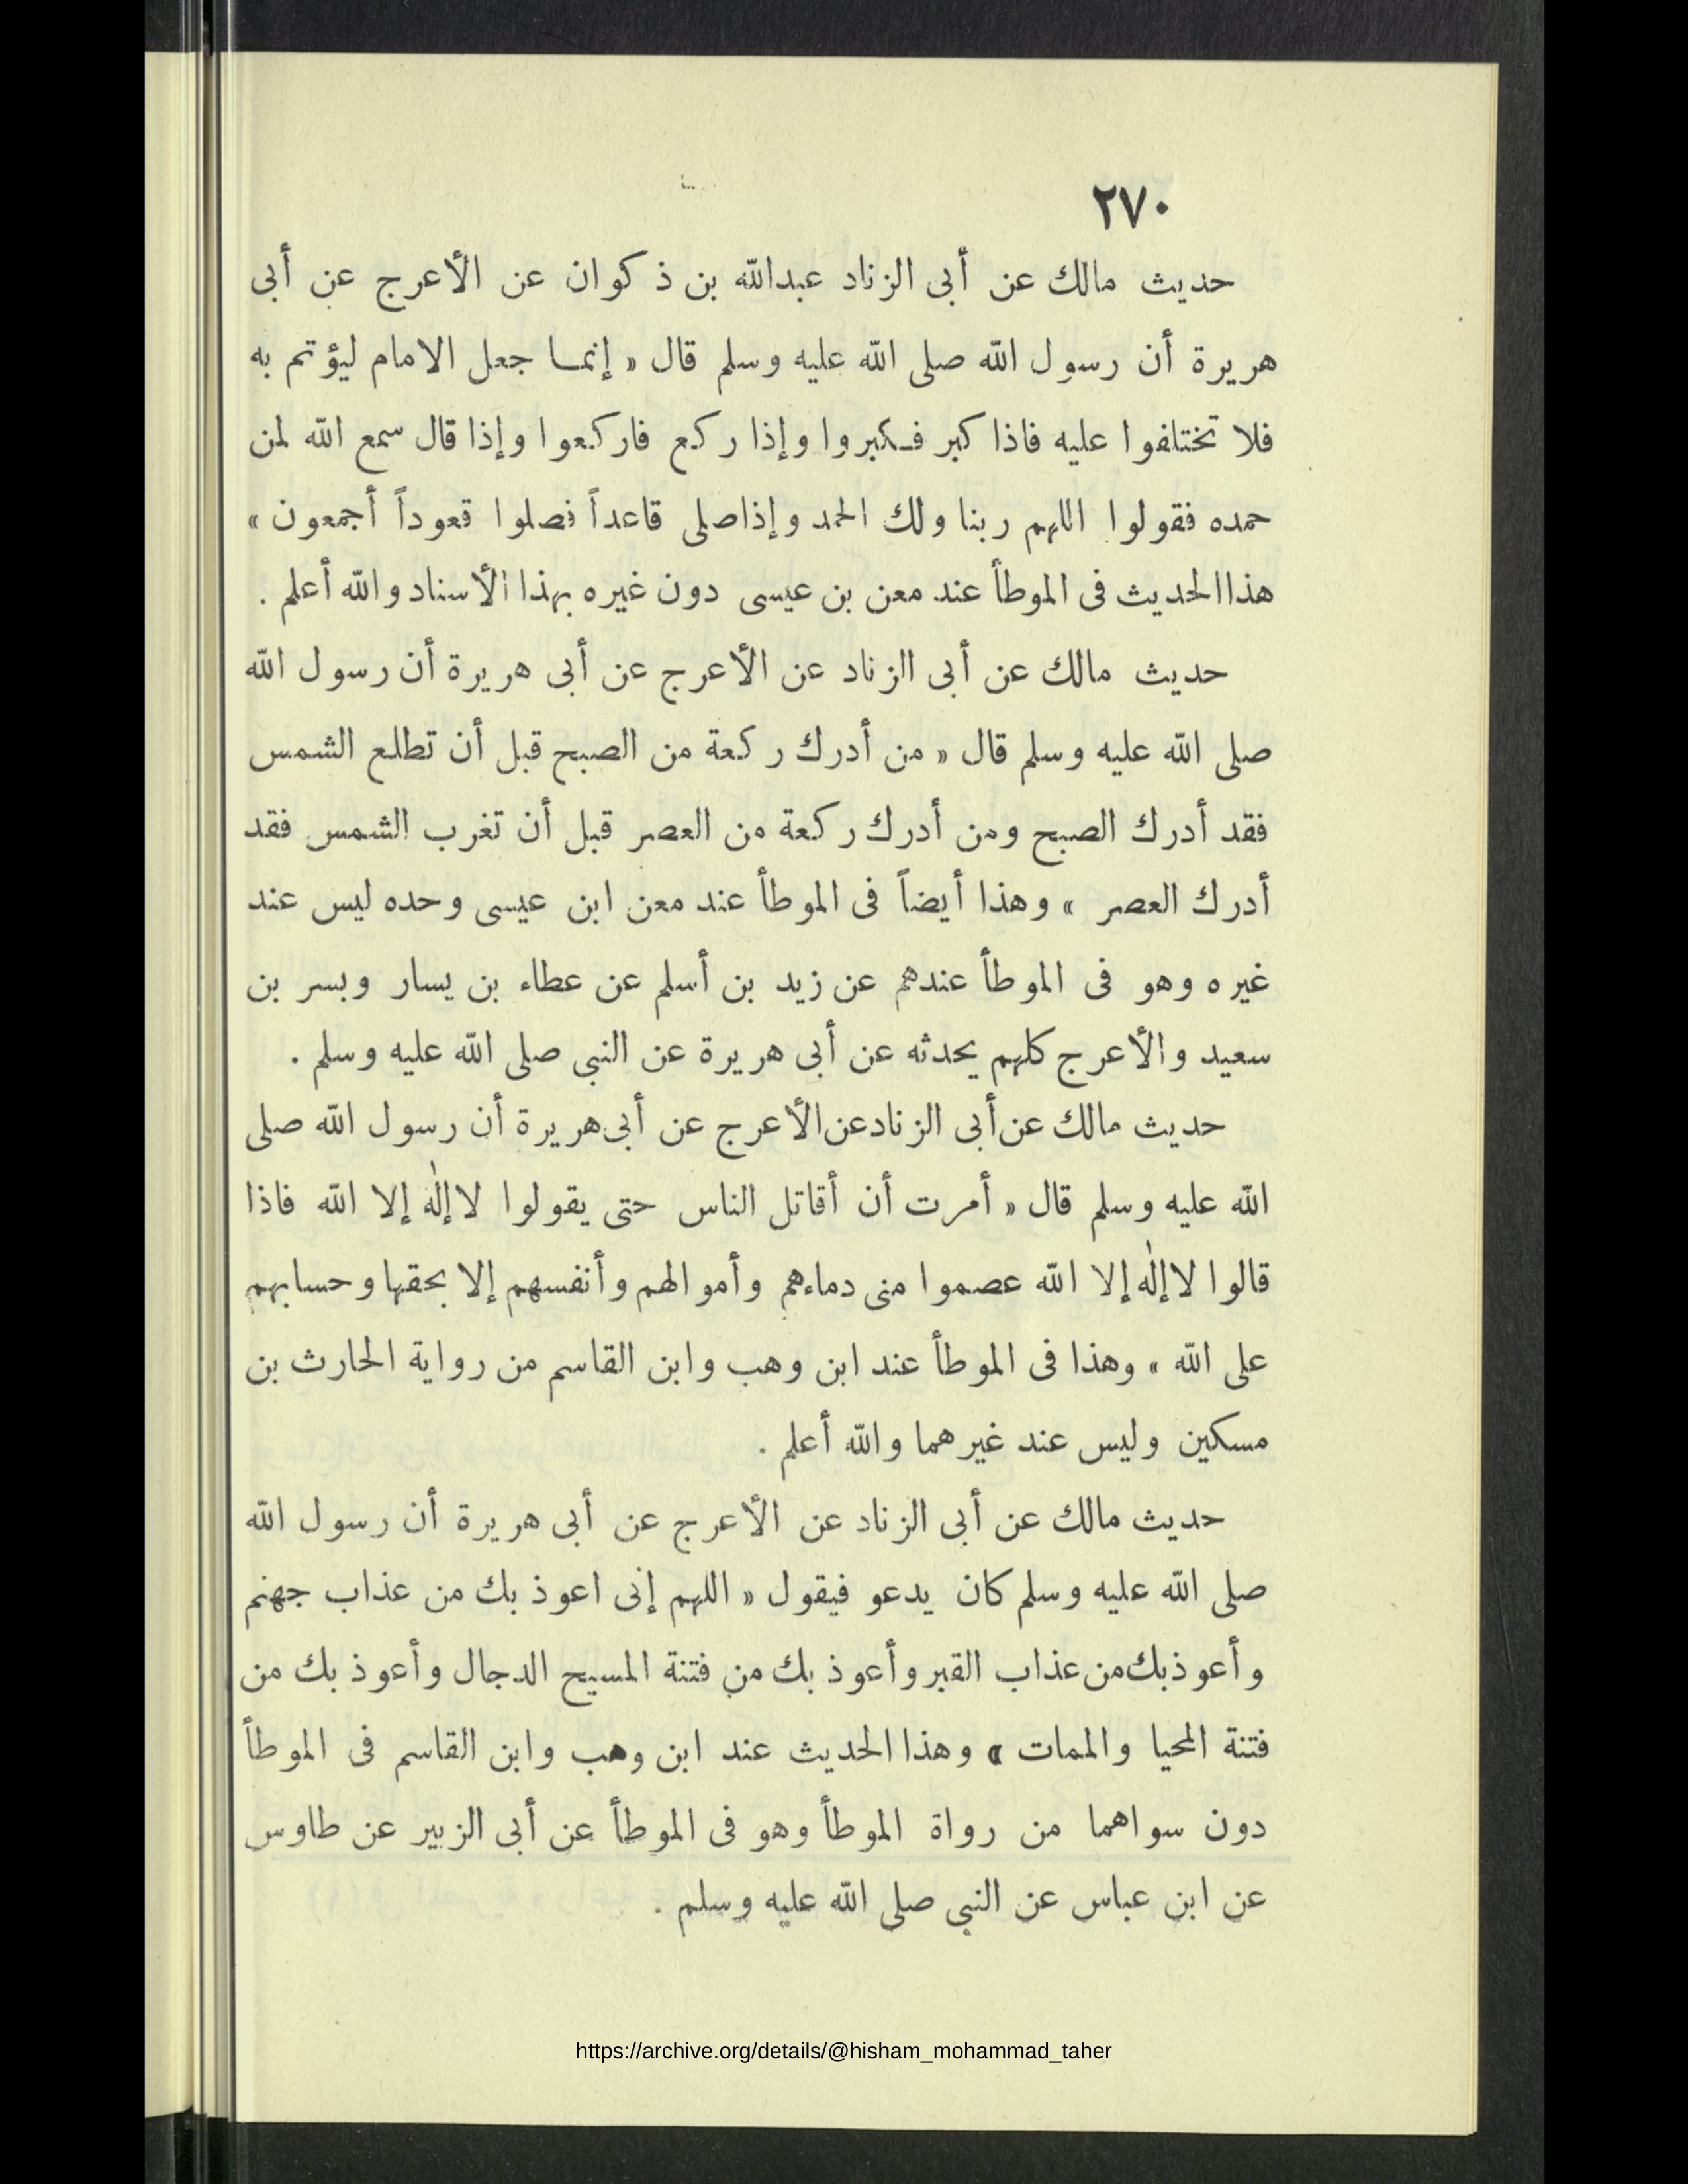 ٢٧٠
حديث مالك عن أبى الزناد عبدالله بن ذكوان عن الأعرج عن أبى
هريرة أن رسول الله صلى الله عليه وسلم قال « إنمـا جعل الامام ليؤتم به
فلا تختلفوا عليه فاذا كبر فـكبروا وإذا ركع فاركعوا وإذا قال سمع الله لمن
حمده فقولوا اللهم ربنا ولك الحمد وإذاصلى قاعداً فصلوا قعوداً أجمعون »
هذاالحديث فى الموطأ عند معن بن عيسى دون غيره بهذا الأسناد والله أعلم .
حديث مالك عن أبى الزناد عن الأعرج عن أبى هريرة أن رسول الله
صلى الله عليه وسلم قال « من أدرك ركعة من الصبح قبل أن تطلع الشمس
فقد أدرك الصبح ومن أدرك ركعة من العصر قبل أن تغرب الشمس فقد
أدرك العصر » وهذا أيضاً فى الموطأ عند معن ابن عيسى وحده ليس عند
غيره وهو فى الموطأ عندهم عن زيد بن أسلم عن عطاء بن يسار وبسر بن
سعيد والأعرج كلهم يحدثه عن أبى هريرة عن النبى صلى الله عليه وسلم .
حديث مالك عن أبى الزناد عن الأعرج عن أبى هريرة أن رسول الله صلى
الله عليه وسلم قال « أمرت أن أقاتل الناس حتى يقولوا لاإلٰه إلا الله فاذا
قالوا لاإلٰه إلا الله عصموا منى دماءهم وأموالهم وأنفسهم إلا بحقها وحسابهم
على الله » وهذا فى الموطأ عند ابن وهب وابن القاسم من رواية الحارث بن
مسكين وليس عند غيرهما والله أعلم .
حديث مالك عن أبى الزناد عن الأعرج عن أبى هريرة أن رسول الله
صلى الله عليه وسلم كان يدعو فيقول « اللهم إنى اعوذ بك من عذاب جهنم
وأعوذبك من عذاب القبر وأعوذ بك من فتنة المسيح الدجال وأعوذ بك من
فتنة المحيا والممات » وهذا الحديث عند ابن وهب وابن القاسم فى الموطأ
دون سواهما من رواة الموطأ وهو فى الموطأ عن أبى الزبير عن طاوس
عن ابن عباس عن النبى صلى الله عليه وسلم .
https://archive.org/details/@hisham_mohammad_taher